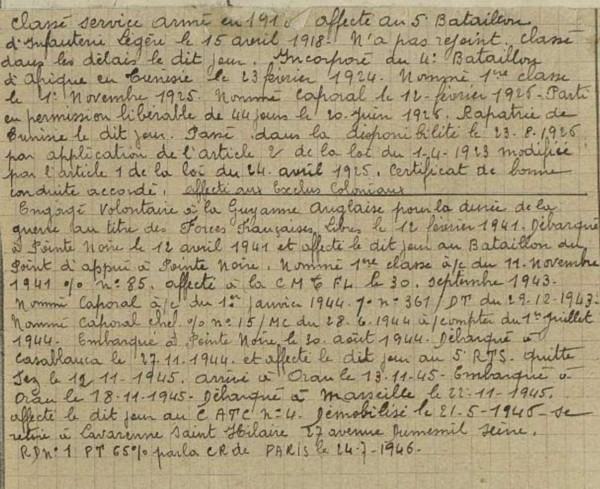 Classé service armé en 191 affecté au 5e Bataillon
d'Infanterie Légère le 15 avril 1918 - N'a pas rejoint. Classé
dans les délais le dit jour. Incorporé du 4e Bataillon
d'Afrique en Tunisie le 23 février 1924. Nommé 1ere classe
le 1e Novembre 1925. Nommé Caporal le 12 février 1926 - Parti
en permission libérable de 44 jours le 20 juin 1926. Rapatrié de
Tunisie le dit jour. Passé dans la disponibilité le 23.8.1926
par application de l'article 2 de la loi du 1-4-1923 modifiée
par l'article 1 de la loi du 24 avril 1925. Certificat de bonne
conduite accordé. affecté aux Exclus Coloniaux
Engagé Volontaire à la Guyanne Anglaise pour la durée de la
guerre au titre des Forces Françaises Libres le 12 février 1941. Débarqué
à Pointe Noire le 12 avril 1941 et affecté le dit jour au Bataillon du
Point d'appui à Pointe Noire. Nommé 1ere classe à/c du 11 Novembre
1941 % n° 85. affecté à la C M E F L le 30. septembre 1943.
Nommé Caporal à/c du 1er janvier 1944. % n° 361/DT du 29-12-1943-
Nommé Caporal chef % n° 15/MC du 28.6.1944 à/compter du 1er Juillet
1944. Embarqué à Pointe Noire le 20. août 1944. Débarqué à
Casablanca le 27.11.1944. et affecté le dit jour au 5e RTS - quitte
Fez le 12.11-1945. arrivé à Oran le 13-11-45 - Embarqué à
Oran le 18-11-1945. Débarqué à Marseille le 22-11-1945.
affecté le dit jour au C A T C n°4. Démobilisé le 21-5-1946 se
retire à Lavarenne Saint Hilaire 27 avenue Dumesnil Seine.
R D n° 1 PT 65% par la CR de PARIS le 24-7-1946-